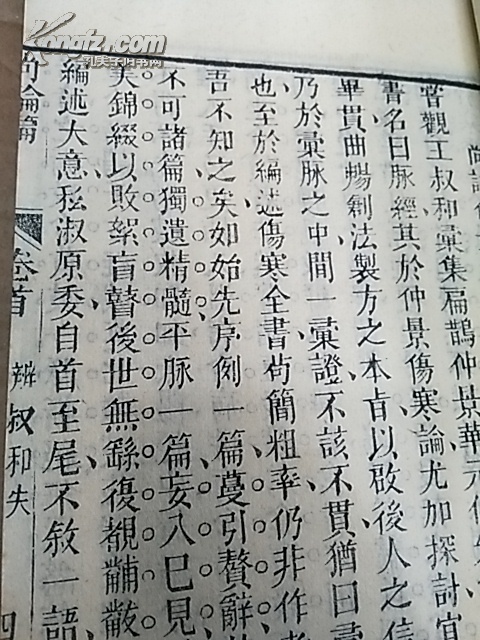 嘗觀王叔和彙集扁鵲仲景華元
書名曰脉經其於仲景傷寒論尤加探討宜
畢貫曲暢創法製方之本旨以啟後人之信
乃於彙脉之中間一彙證不該不貫猶曰
也至於編述傷寒全書苟簡粗率仍非作者
吾不知之矣如始先序例一篇蔓引贅辭
不可諸篇獨遺精髓平脉一篇妄入巳見
美錦綴以敗絮盲瞽後世無繇復覩黼黻
編述大意私淑原委自首至尾不敘一語
尚論篇 卷首 辨叔和失 四
Kongfz.com
孔夫子旧书网